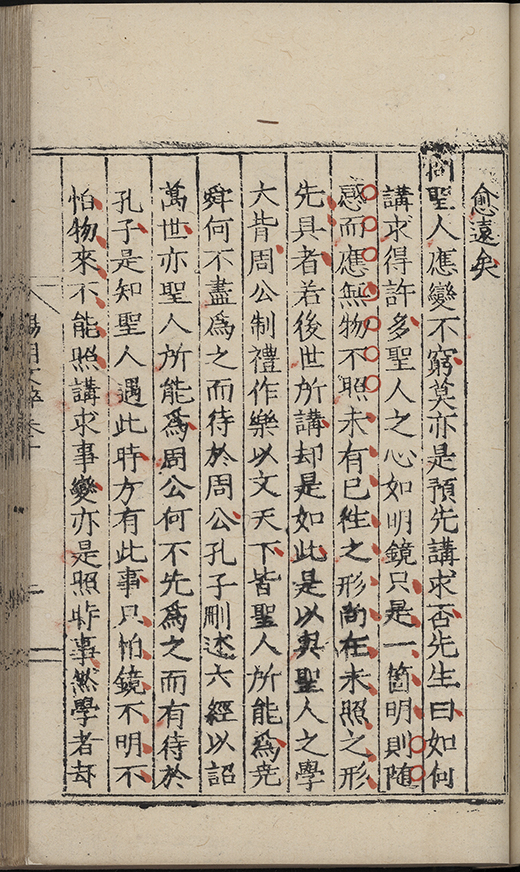 愈遠矣
問聖人應變不窮莫亦是預先講求否先生曰如何
講求得許多聖人之心如明鏡只是一箇明則隨
感而應無物不照未有已徃之形尚在未照之形
先具者若後世所講却是如此是以與聖人之學
大背周公制禮作樂以文天下皆聖人所能為堯
舜何不盡為之而待於周公孔子刪述六經以詔
萬世亦聖人所能為周公何不先為之而有待於
孔子是知聖人遇此時方有此事只怕鏡不明不
怕物來不能照講求事變亦是照時事然學者却
陽明文粹卷十